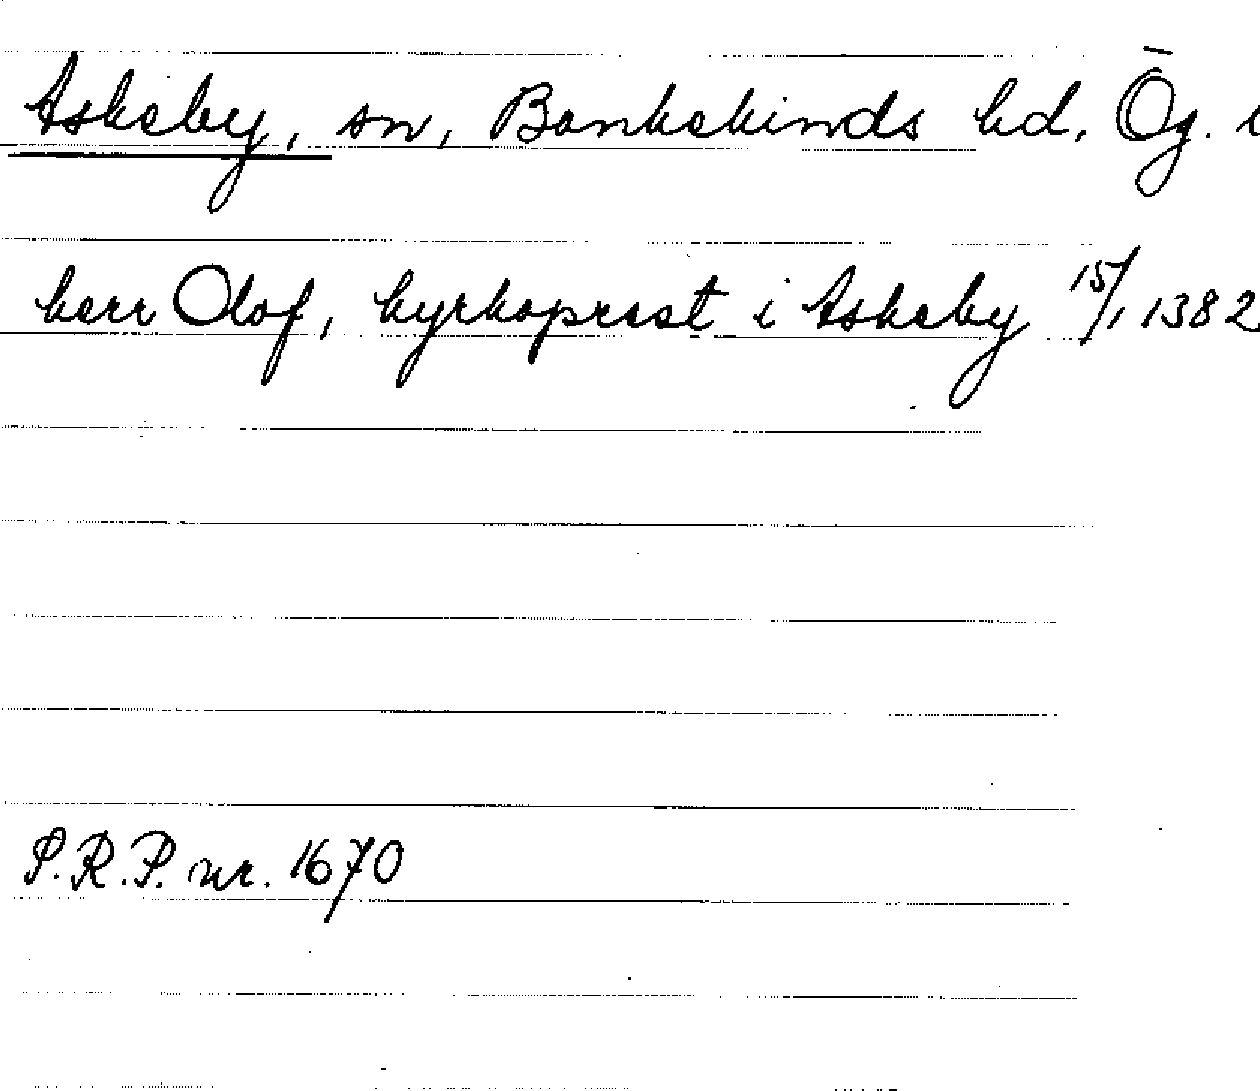 Askeby, sn, Bankekinds hd, Ög.
herr Olof, kyrkoprest i Askeby 15/1 1382
P.R.P. nr. 1670